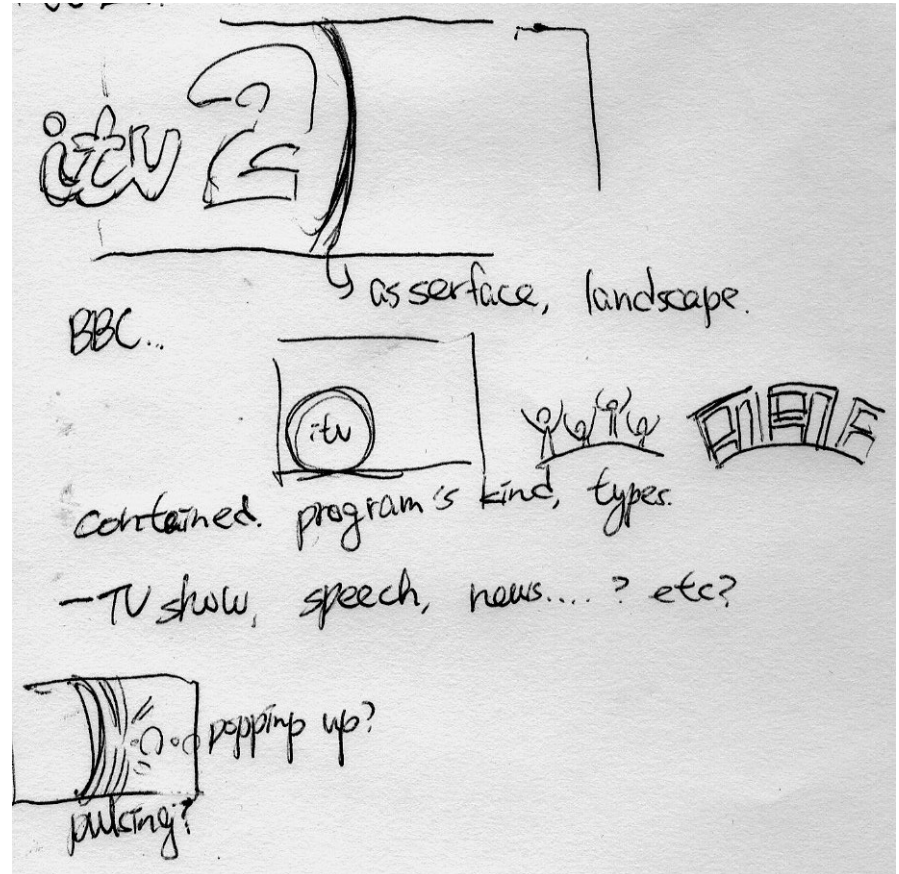 itv 2
as serface, landscape.
BBC...
itv
contained. program's kind, types.
- TV show, speech, news....? etc?
popping up?
pulsing?